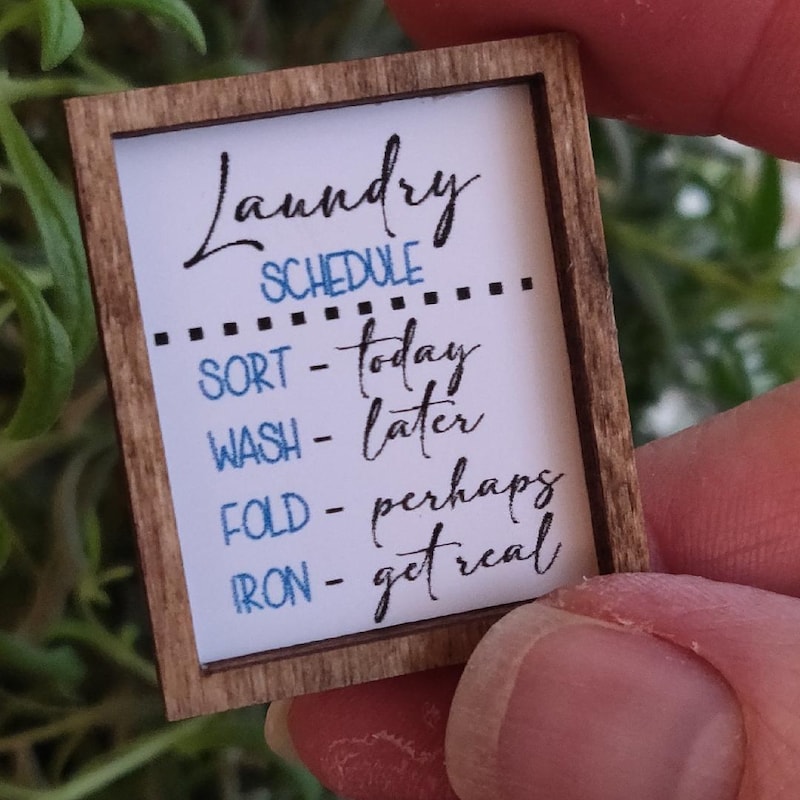 Laundry
SCHEDULE
SORT - today
WASH - later
FOLD - perhaps
IRON - get real